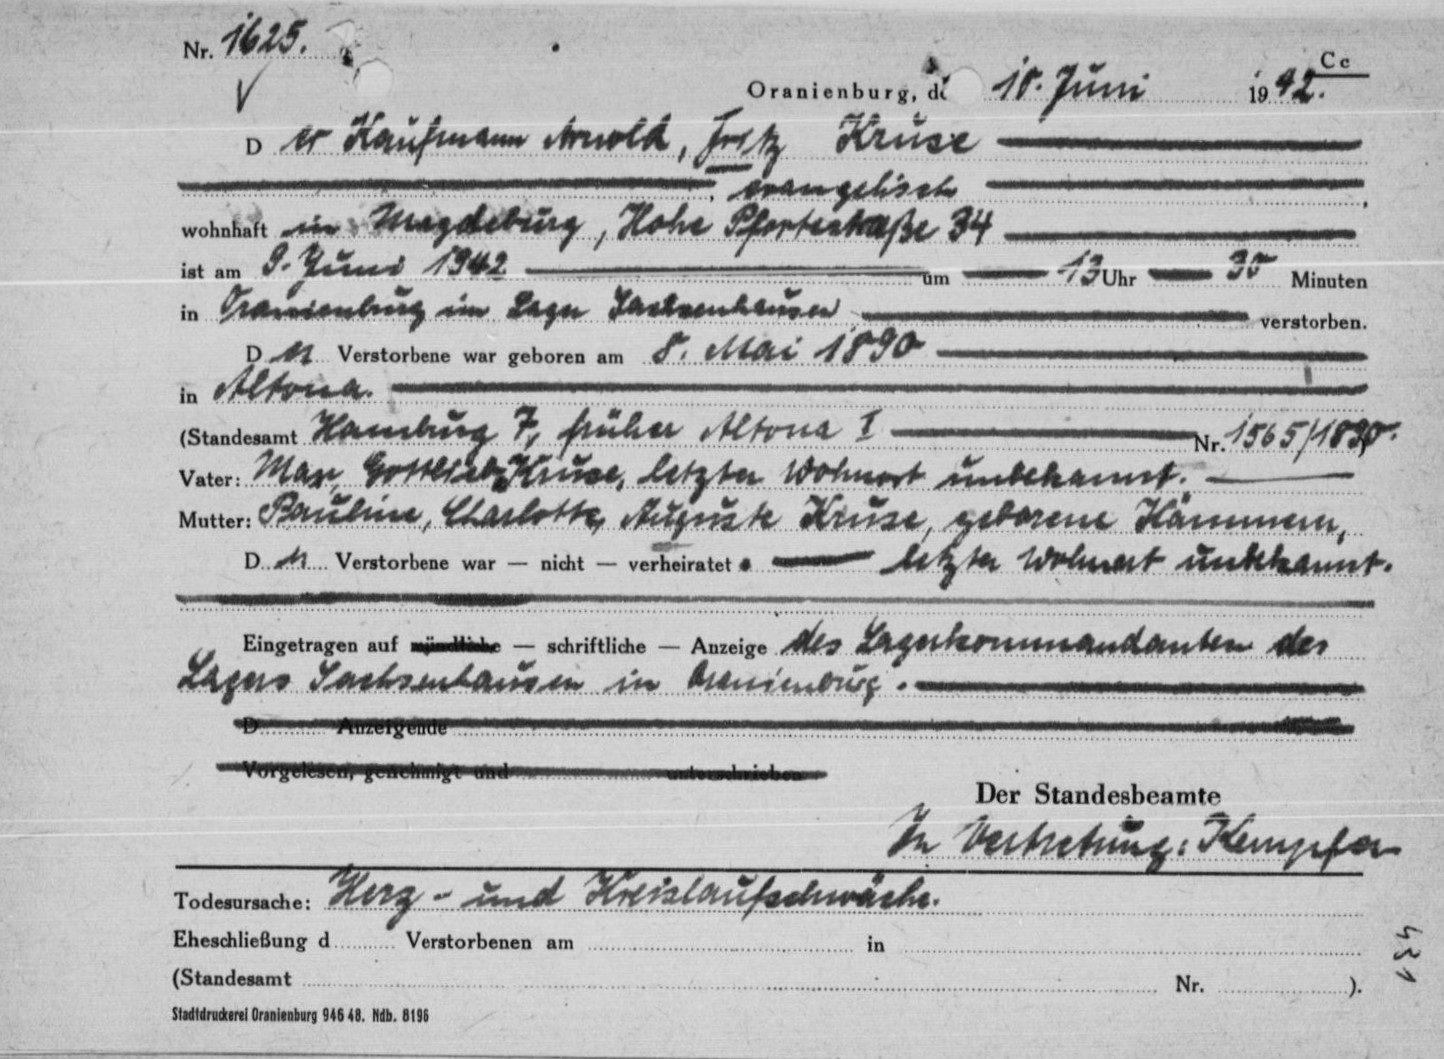 Nr. 1625.
Cc
Oranienburg, de 10. Juni 1942.
D er Kaufmann Arnold, Fritz Kruse
, evangelisch ,
wohnhaft in Magdeburg, Hohe Pfortestraße 34
ist am 9. Juni 1942 um 13 Uhr 35 Minuten
in Oranienburg im Lager Sachsenhausen verstorben.
D er Verstorbene war geboren am 8. Mai 1890
in Altona.
(Standesamt Hamburg 7, früher Altona I Nr. 1565/1890.
Vater: Max, Gottlieb Kruse, letzter Wohnort unbekannt.
Mutter: Pauline, Charlotte, Auguste Kruse, geborene
D er Verstorbene war — nicht — verheiratet. letzter Wohnort unbekannt.
Eingetragen auf mündliche — schriftliche — Anzeige des Lagerkommandanten des
Lagers Sachsenhausen in Oranienburg.
D Anzeigende
Vorgelesen, genehmigt und unterschrieben
Der Standesbeamte
In Vertretung: Kempfer
Todesursache: Herz- und Kreislaufschwäche.
Eheschließung d Verstorbenen am in
(Standesamt Nr. ).
Stadtdruckerei Oranienburg 946 48. Ndb. 8196
431